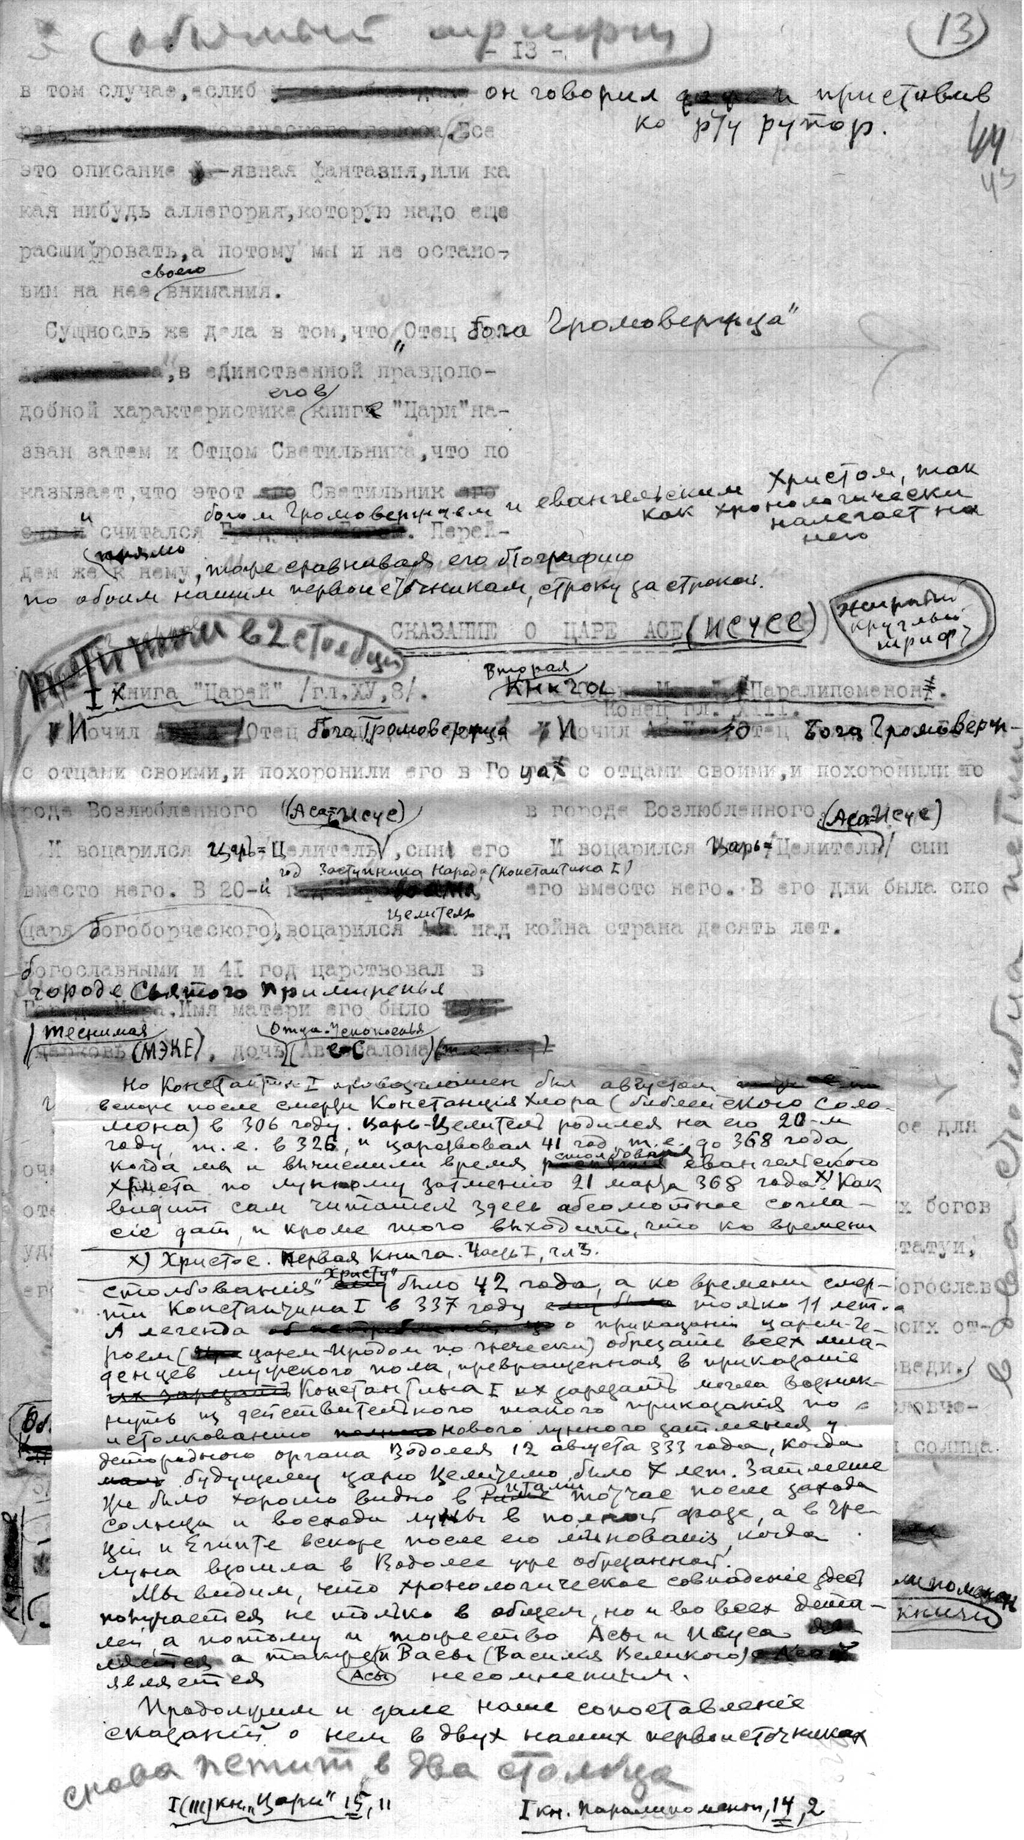 (обычный шрифт)
- 13 -
(13)
в том случае, еслиб он говорил приставив
ко рту рупор.
44
43
Все
это описание - явная фантазия, или ка
кая нибудь аллегория, которую надо еще
расшифровать, а потому мы и не остано-
своего
вим на нее внимания.
Сущность же дела в том, что "Отец бога Громовержца"
, в единственной правдопо-
его в
добной характеристике книге "Цари" на-
зван затем и Отцом Светильника, что по
казывает, что этот Светильник
и считался богом Громовержцем и евангельским Христом, так
как хронологически
налегает на
него
. Перей-
прямо
дем же к нему, тоже сравнивая его биографию
по обоим нашим первоисточникам, строку за строкой.
СКАЗАНИЕ О ЦАРЕ АСЕ (ИСУСЕ)
жирный
круглый
шриф
Петитом в 2 столбца
I Книга "Царей" /гл. ХУ, 8/.
Вторая
книга Паралипоменон.
Конец гл. XIII.
И почил Отец бога Громовержца
с отцами своими, и похоронили его в Го
роде Возлюбленного (Аса=Исус)
И воцарился Царь=Целитель, сын его
год Заступника Народа (Константина I)
вместо него. В 20-й
Целитель
царя богоборческого, воцарился над
богославными и 41 год царствовал в
городе Святого Примиренья
. Имя матери его было
теснимая Отца-Успокоенья
церковь (МЭКЕ), дочь Авесалома
И почил Отец Бога Громоверж-
ца с отцами своими, и похоронили его
в городе Возлюбленного (Аса=Исус)
И воцарился Царь=Целитель сын
его вместо него. В его дни была спо
койна страна десять лет.
Но Константин I провозглашен был августом
вскоре после смерти Констанция Хлора (библейского Соло-
мона) в 306 году. Царь-Целитель родился на его 20-м
году, т.е. в 326, и царствовал 41 год, т.е. до 368 года,
когда мы и вычислили время столбования евангельского
Христа по лунному затмению 21 марта 368 года х) Как
видит сам читатель здесь абсолютное согла-
сие дат, и кроме того выходит, что ко времени
х) Христос. Первая книга. Часть I, гл 3.
столбования "Христу" было 42 года, а ко времени смер-
ти Константина I в 337 году только 11 лет.
А легенда о приказании царем-Ге-
роем (царем-Иродом по гречески) обрезать всех мла-
денцев мужского пола, превращенная в приказание
Константина I их зарезать могла возник-
нуть из действительного такого приказания по
истолкованию нового лунного затмения у
детородного органа Водолея 12 августа 333 года, когда
будущему царю Целителю было 7 лет. Затмение
же было хорошо видно в Италии тотчас после захода
солнца и восхода луны в полной фазе, а в Гре-
ции и Египте вскоре после его минования, когда
луна взошла в Водолее уже обрезанной.
Мы видим, что хронологическое совпадение здесь
получается не только в общем, но и во всех дета-
лях а потому и тожество Асы и Исуса
а также и Васы (Василия Великого)
является (Асы) несомненным.
Продолжим и далее наше сопоставление
сказаний о нем в двух наших первоисточниках
снова петит в два столбца
I (III) кн. "Цари" 15, 11
I кн. Паралипоменон, 14, 2
ое для
х богов
татуи,
огослав
воих от-
веди.
ловие-
и солнца.
липоменон
книги
в два столбца петит